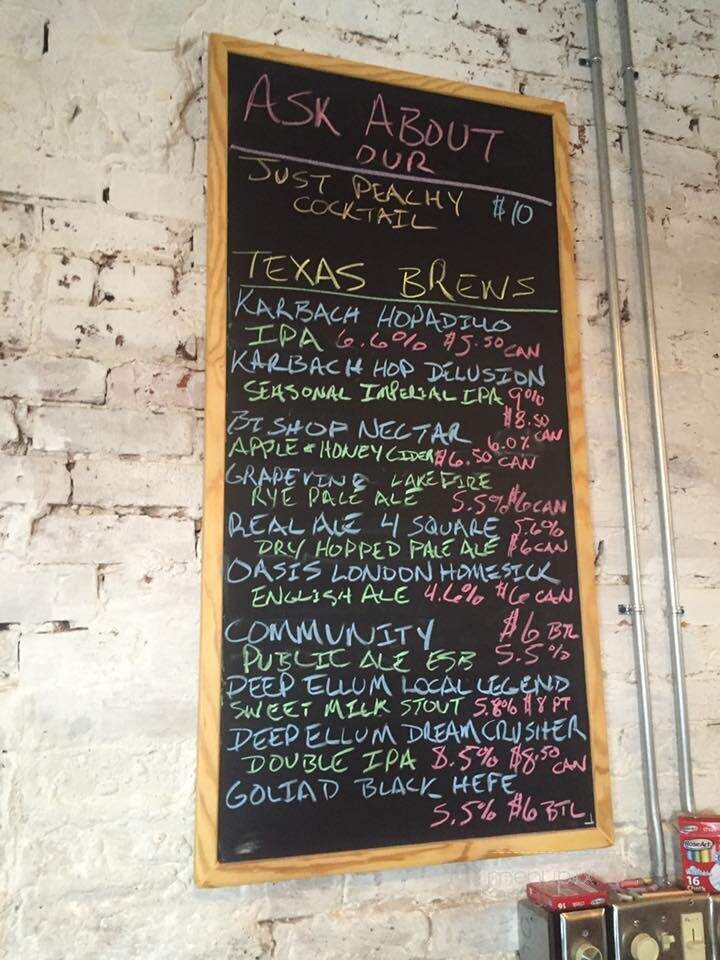 ASK ABOUT
OUR
JUST PEACHY $10
COCKTAIL
TEXAS BREWS
KARBACH HOPADILLO
IPA 6.6% $5.50 CAN
KARBACH HOP DELUSION
SEASONAL IMPERIAL IPA 9%
$8.50 CAN
BISHOP NECTAR 6.0%
APPLE & HONEY CIDER $6.50 CAN
GRAPEVINE LAKEFIRE
RYE PALE ALE 5.5% $6 CAN
REAL ALE 4 SQUARE 5.6%
DRY HOPPED PALE ALE $6 CAN
OASIS LONDON HOMESICK
ENGLISH ALE 4.6% $6 CAN
COMMUNITY $6 BTL
PUBLIC ALE ESB 5.5%
DEEP ELLUM LOCAL LEGEND
SWEET MILK STOUT 5.8% $8 PT
DEEP ELLUM DREAMCRUSHER
DOUBLE IPA 8.5% $8.50 CAN
GOLIAD BLACK HEFE
5.5% $6 BTL
RoseArt
16
Chalk
16
menupix